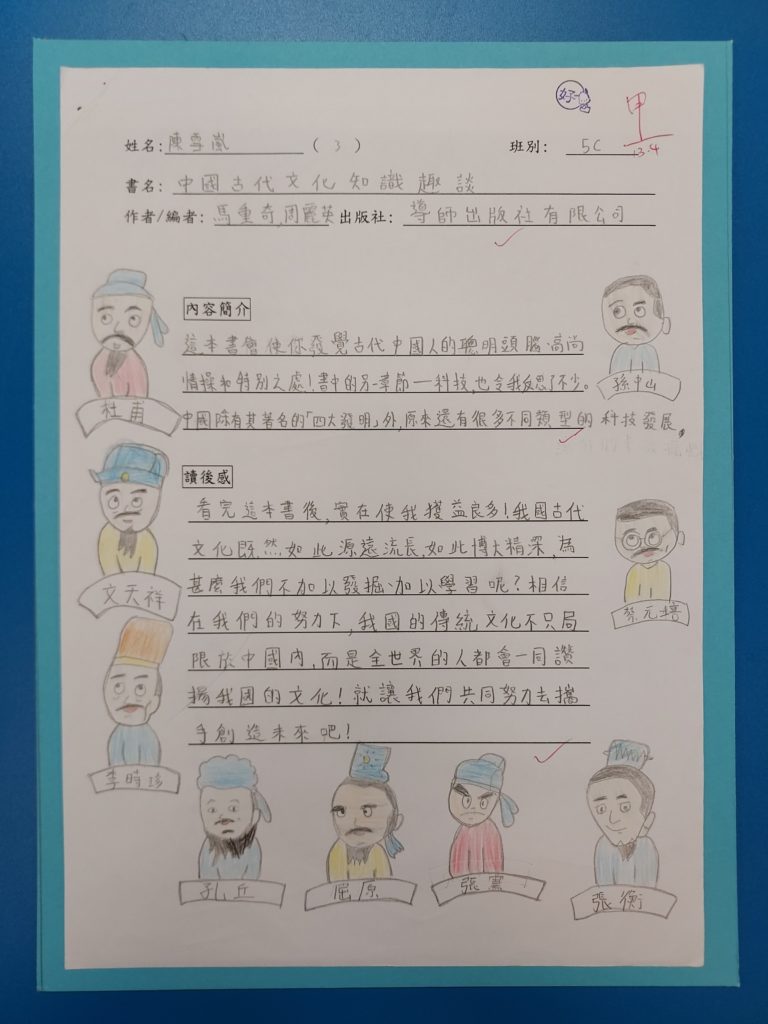 好
甲
13.4
姓名: 陳雪嵐 ( 3 ) 班別: 5C
書名: 中國古代文化知識趣談
作者/編者: 馬重奇,周麗英 出版社: 導師出版社有限公司
內容簡介
這本書會使你發覺古代中國人的聰明頭腦、高尚
情操和特別之處!書中的另一章節——科技,也令我反思了不少。
中國除有其著名的「四大發明」外,原來還有很多不同類型的科技發展。
讀後感
看完這本書後,實在使我獲益良多!我國古代
文化既然如此源遠流長,如此博大精深,為
甚麼我們不加以發掘、加以學習呢?相信
在我們的努力下,我國的傳統文化不只局
限於中國內,而是全世界的人都會一同讚
揚我國的文化!就讓我們共同努力去攜
手創造未來吧!
杜甫
孫中山
文天祥
蔡元培
李時珍
孔丘
屈原
張騫
張衡